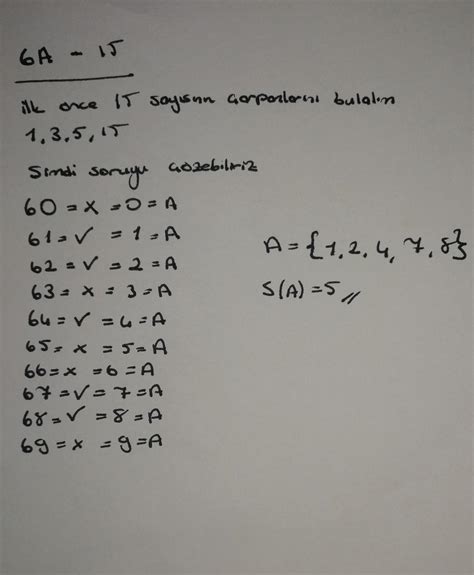 6A - 15
ilk önce 15 sayısının çarpanlarını bulalım
1,3,5,15
Şimdi soruyu çözebiliriz
60 = x = 0 = A
61 = √ = 1 = A
62 = √ = 2 = A
63 = x = 3 = A
64 = √ = 4 = A
65 = x = 5 = A
66 = x = 6 = A
67 = √ = 7 = A
68 = √ = 8 = A
69 = x = 9 = A
A = {1, 2, 4, 7, 8}
S(A) = 5 //